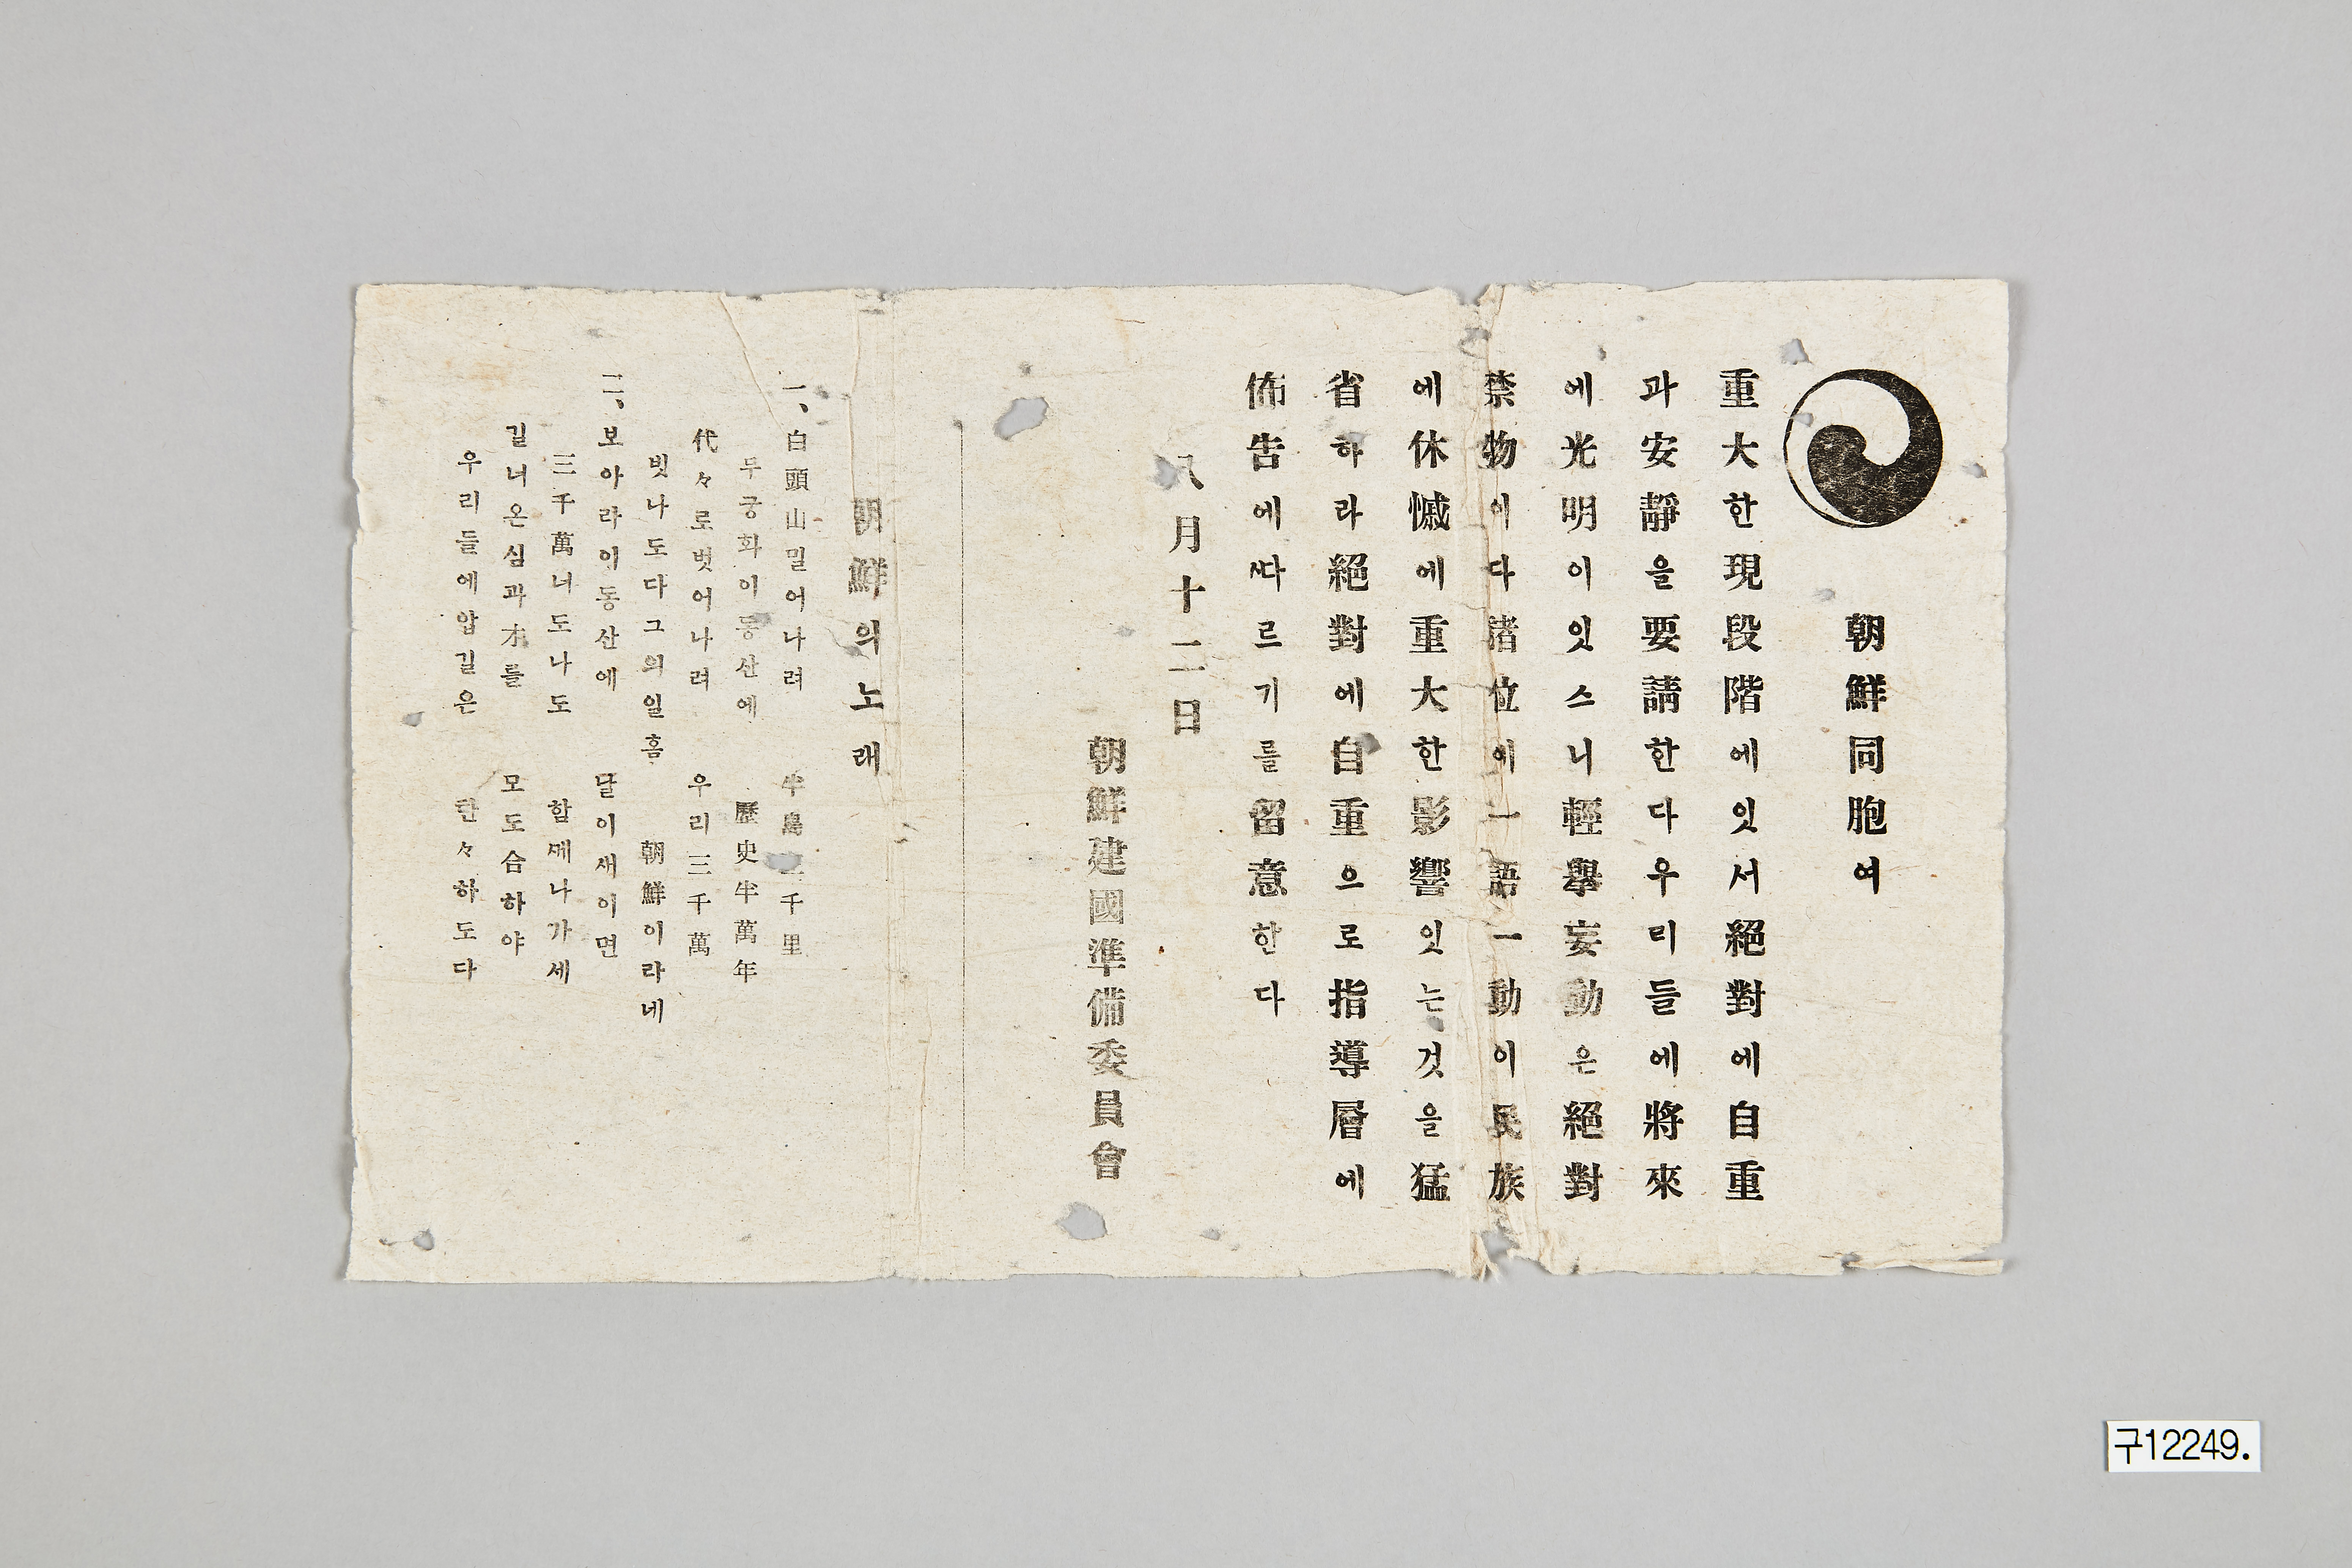 朝鮮同胞여
重大한現段階에잇서絕對에自重
과安靜을要請한다우리들에將來
에光明이잇스니輕擧妄動은絕對
禁物이다諸位이一語一動이民族
에休慽에重大한影響잇는것을猛
省하라絕對에自重으로指導層에
佈告에ᄯᅡ르기를留意한다
八月十二日
朝鮮建國準備委員會
朝鮮의노래
一、白頭山밀어나려 半島三千里
무궁화이동산에 歷史半萬年
代々로벗어나려 우리三千萬
빗나도다그의일홈 朝鮮이라네
二、보아라이동산에 달이새이면
三千萬너도나도 함ᄭᅦ나가세
길너온심과才를 모도合하야
우리들에압길은 탄々하도다
구12249.